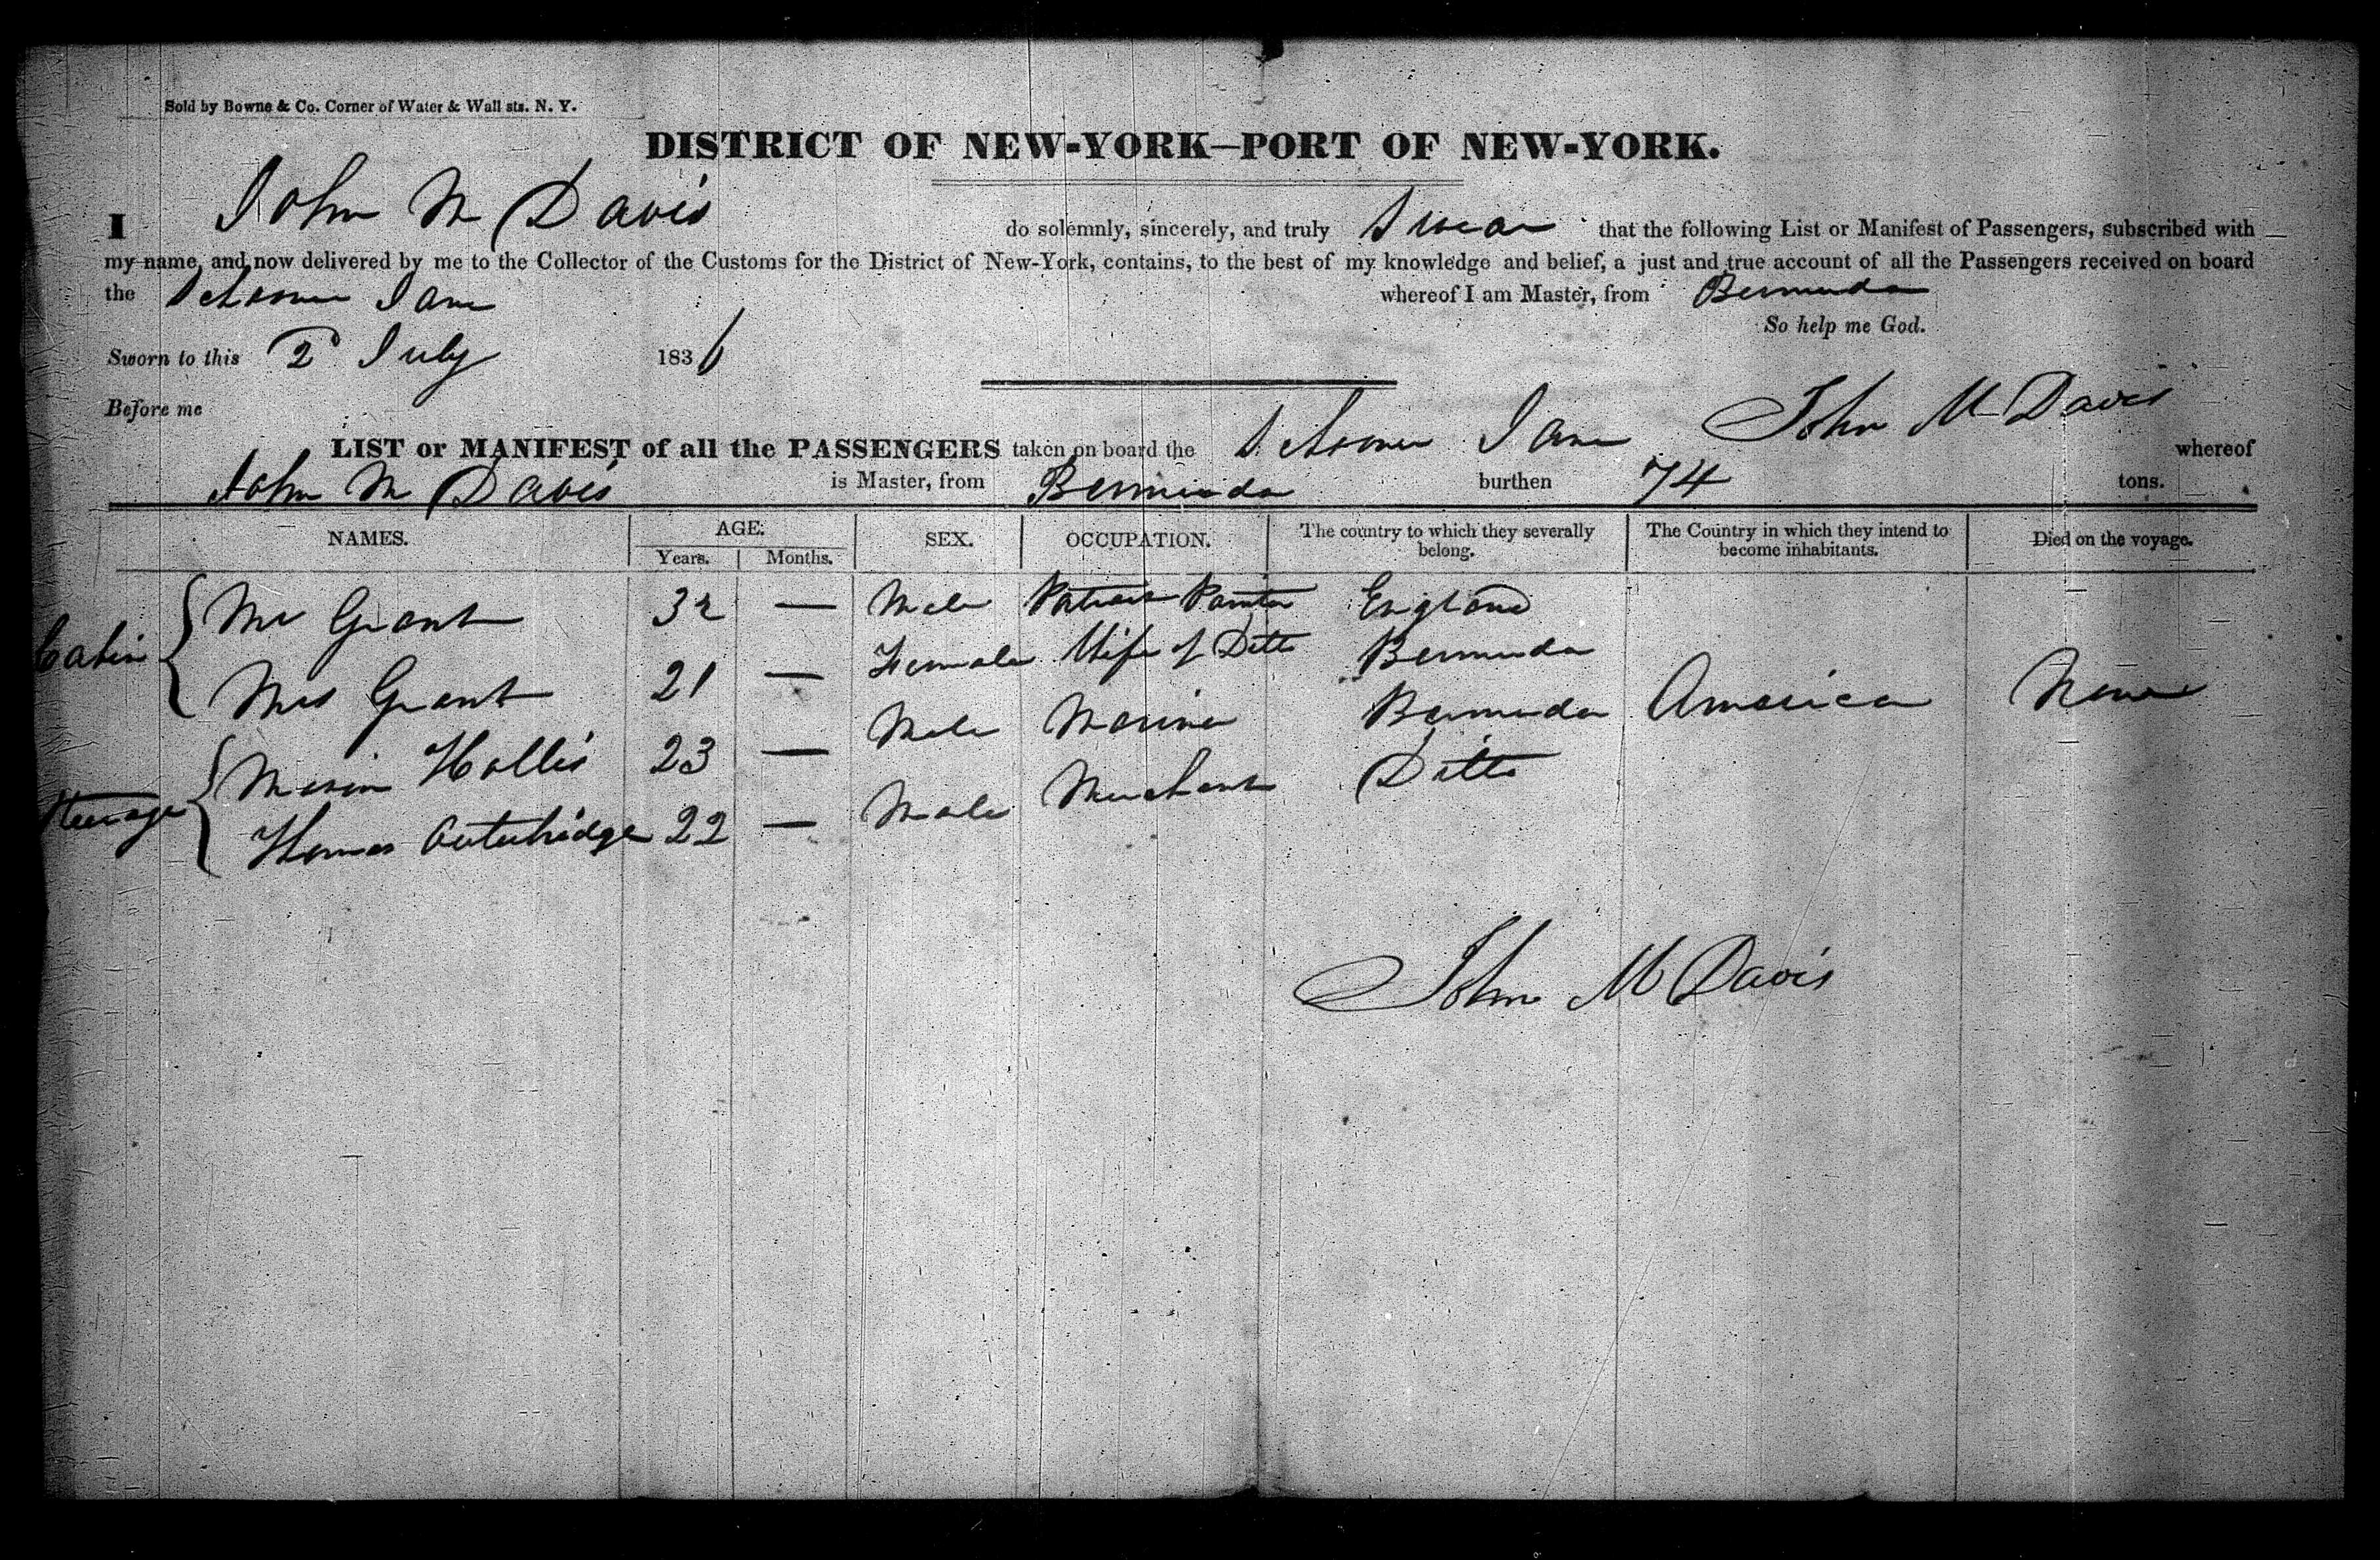 Sold by Bowne & Co. Corner of Water & Wall sts. N. Y.
DISTRICT OF NEW-YORK—PORT OF NEW-YORK.
I John M Davis do solemnly, sincerely, and truly Swear that the following List or Manifest of Passengers, subscribed with
my name, and now delivered by me to the Collector of the Customs for the District of New-York, contains, to the best of my knowledge and belief, a just and true account of all the Passengers received on board
the Schooner Jane whereof I am Master, from Bermuda
So help me God.
Sworn to this 2 July 1836
Before me
John M Davis
LIST or MANIFEST of all the PASSENGERS taken on board the Schooner Jane whereof
John M Davis is Master, from Bermuda burthen 74 tons.
NAMES. AGE: Years. Months. SEX. OCCUPATION. The country to which they severally belong. The Country in which they intend to become inhabitants. Died on the voyage.
Cabin
Mr Grant 32 — Male Painter England
Mrs Grant 21 — Female Wife of Ditto Bermuda
Steerage
Hollis 23 — Male Mariner Bermuda America None
Thomas Outerbridge 22 — Male Merchant Ditto
John M Davis